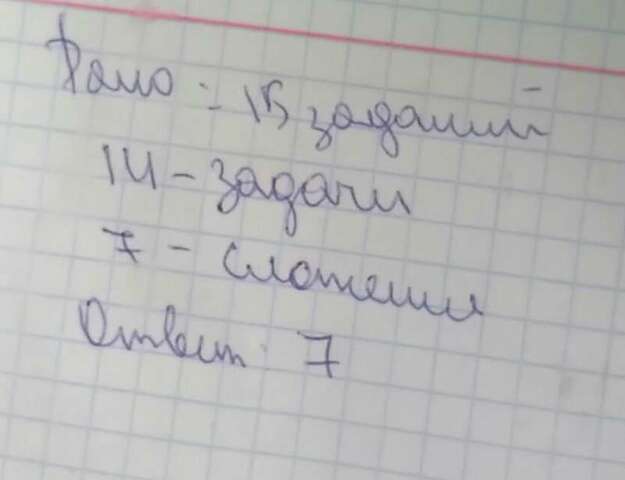 Дано: 15 заданий
14 - задачи
7 - сложении
Ответ: 7